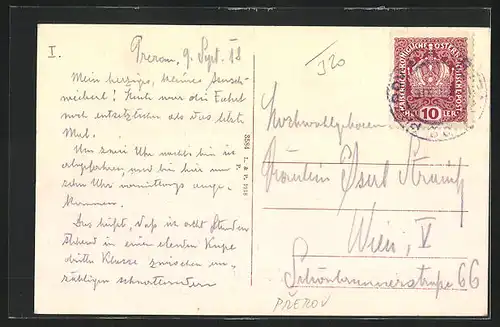 I.
Prerau, 9. Sept. 18
Mein herziges, kleines
Heut war die Fahrt
noch entsetzlicher als das letzte
Mal.
Um zwei Uhr nachts bin ich
abgefahren, und bin hier um
zehn Uhr vormittags ange-
kommen.
Das heißt, daß ich acht Stunden
stehend in einem elenden Kupe
dritte Klasse zwischen un-
zähligen schnatternden
3584 L. & P. 1918
P.
J20
KAISERLICHE KÖNIGLICHE ÖSTERREICHISCHE POST
10
HELLER
Hochwohlgeboren
Fräulein
Wien, V
Schönbrunnerstraße 66
PŘEROV